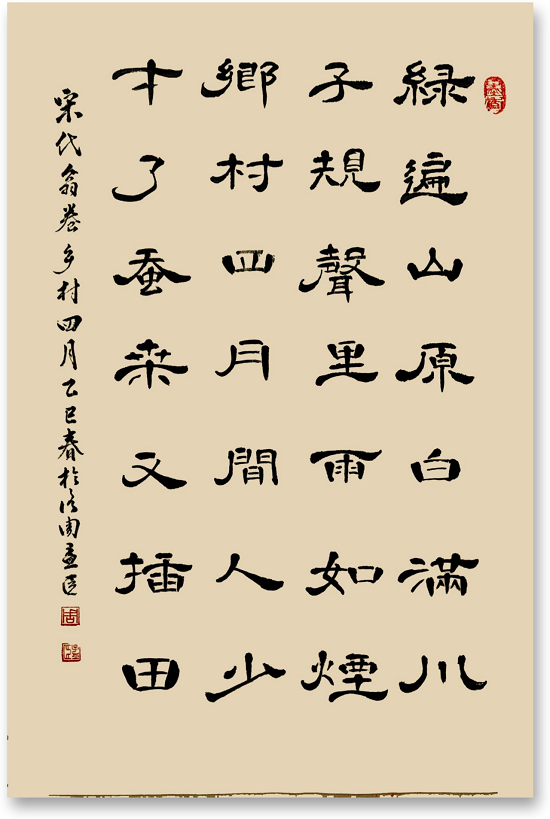 綠遍山原白滿川
子規聲里雨如煙
鄉村四月間人少
才了蚕桒又插田
宋代翁卷乡村四月乙巳春於周孟臣